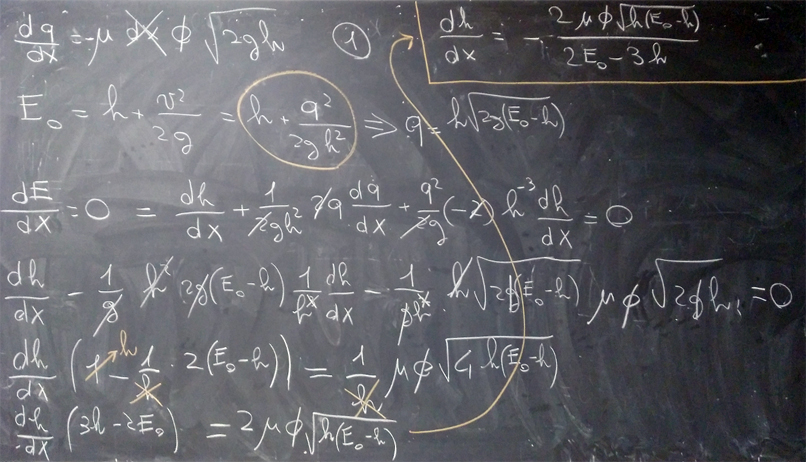 dq/dx = -μ dx φ √(2gh) ①
dh/dx = - 2μφ√(h(E₀-h)) / (2E₀-3h)
E₀ = h + v²/2g = h + q²/2gh² ⇒ q = h√(2g(E₀-h))
dE/dx = 0 = dh/dx + 1/2gh² 2q dq/dx + q²/2g (-2) h⁻³ dh/dx = 0
dh/dx - 1/g h² 2g(E₀-h) 1/h³ dh/dx - 1/gh² h√(2g(E₀-h)) μφ√(2gh) = 0
dh/dx (1 h - 1/h · 2(E₀-h)) = 1/h μφ√(4 h(E₀-h))
dh/dx (3h-2E₀) = 2μφ√(h(E₀-h))